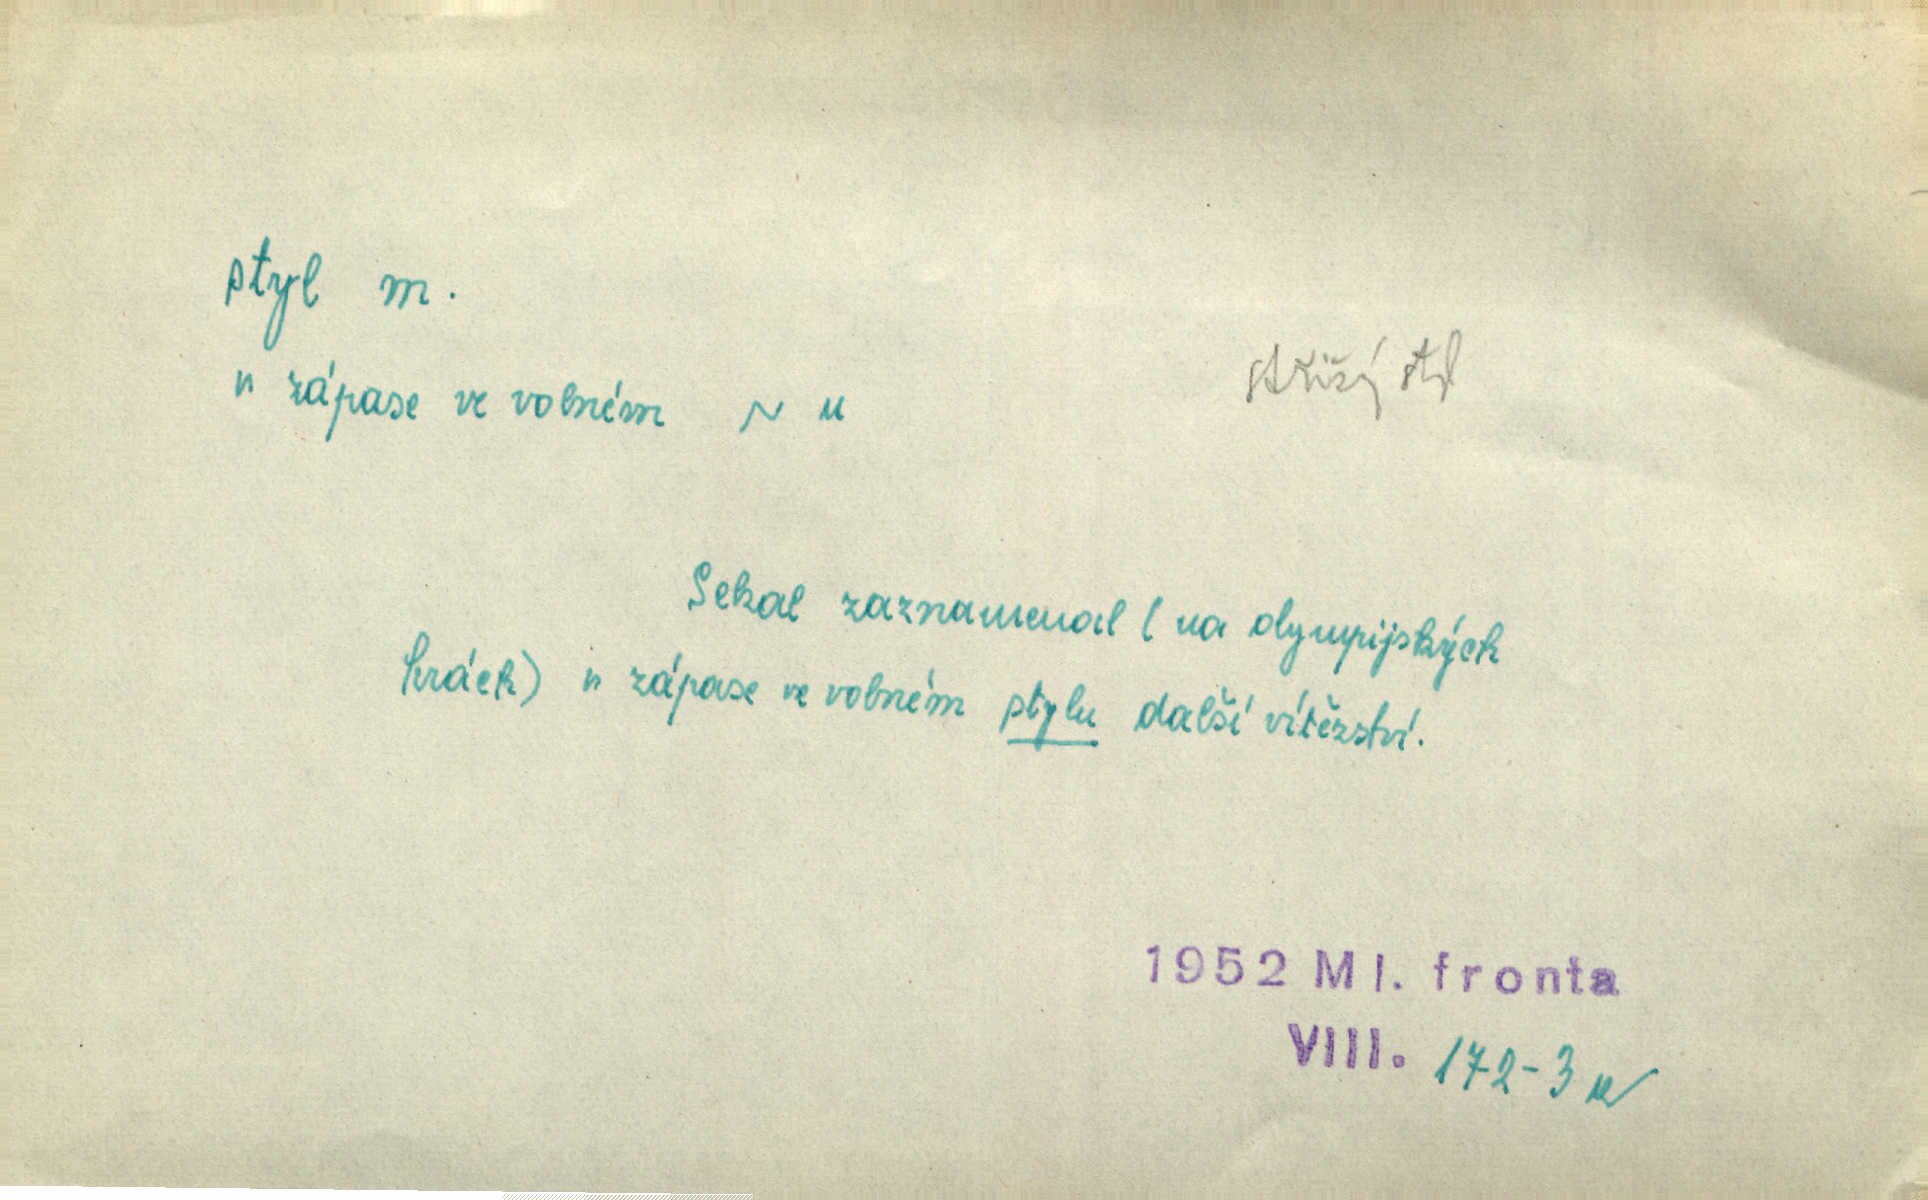 styl m.
v zápase ve volném ~ u
Sekal zaznamenal (na olympijských
hrách) v zápase ve volném stylu další vítězství.
1952 Ml. fronta
VIII. 172-3